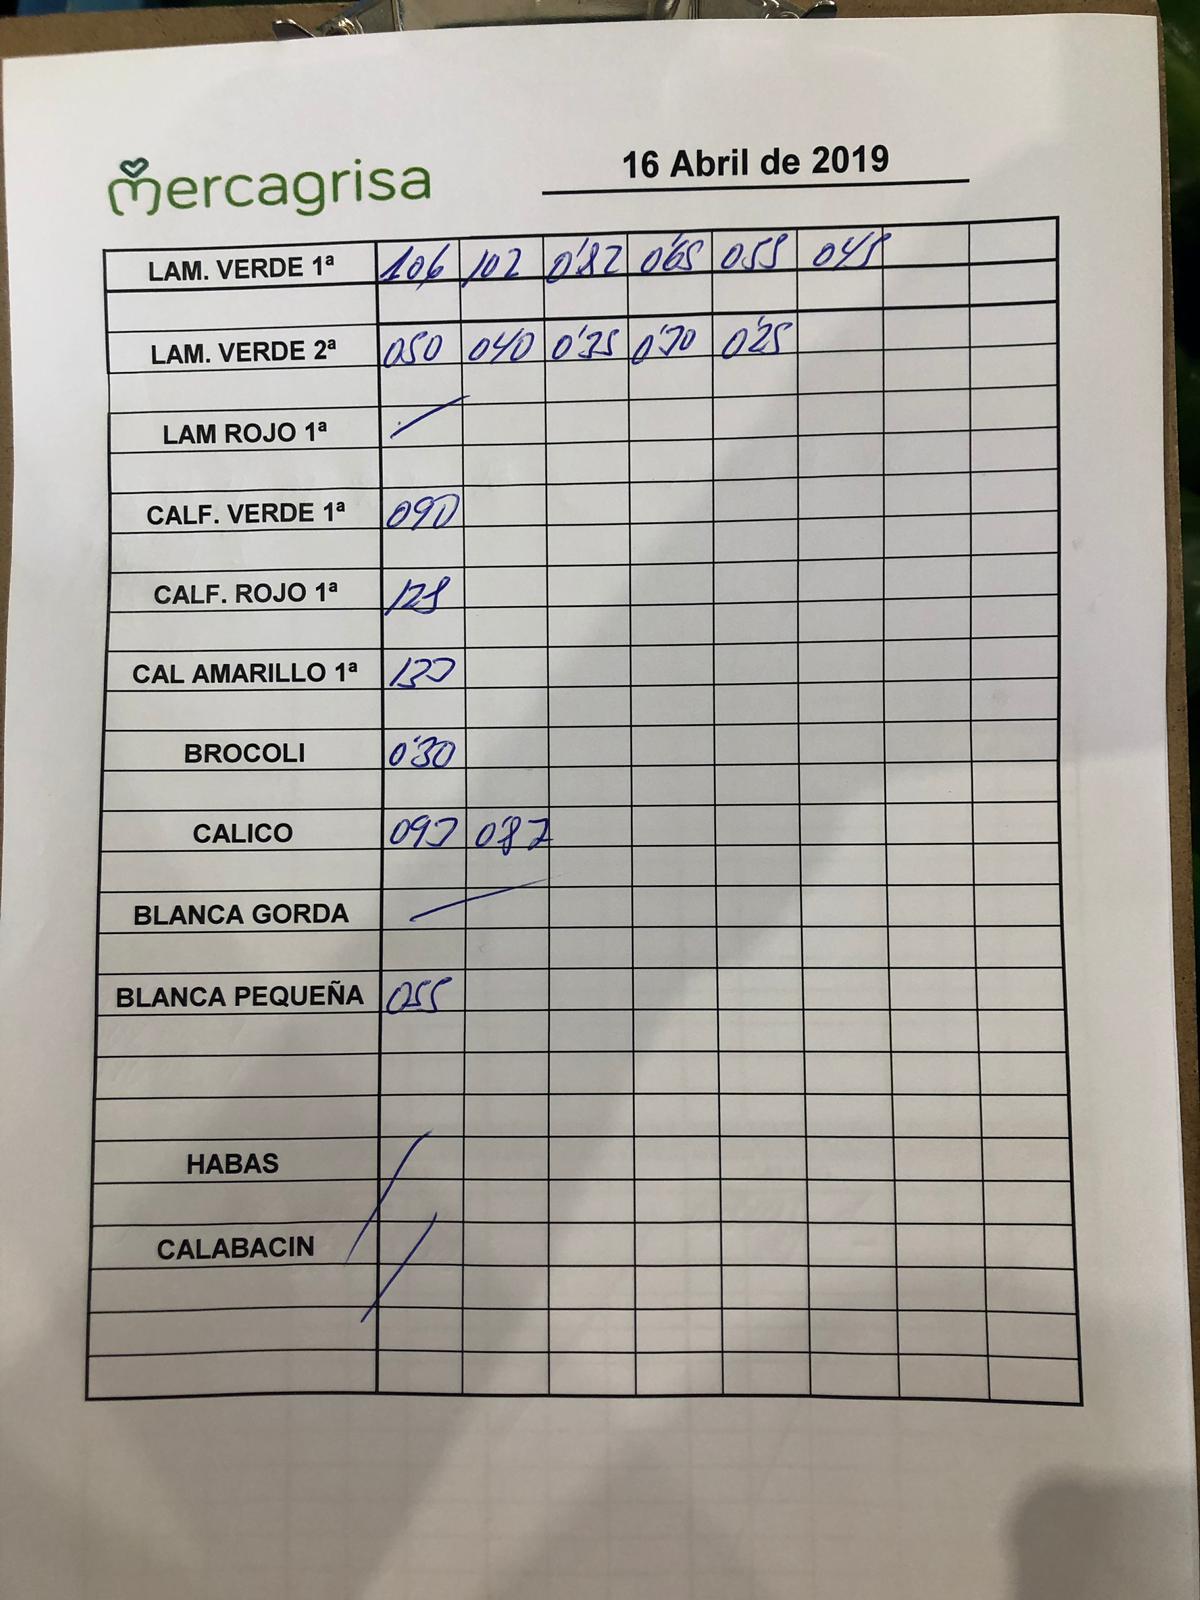 mercagrisa
16 Abril de 2019
LAM. VERDE 1ª 106 102 0'82 0'65 055 045
LAM. VERDE 2ª 050 040 0'35 0'30 0'25
LAM ROJO 1ª
CALF. VERDE 1ª 090
CALF. ROJO 1ª 125
CAL AMARILLO 1ª 130
BROCOLI 0'30
CALICO 0'87
BLANCA GORDA
BLANCA PEQUEÑA 055
HABAS
CALABACIN